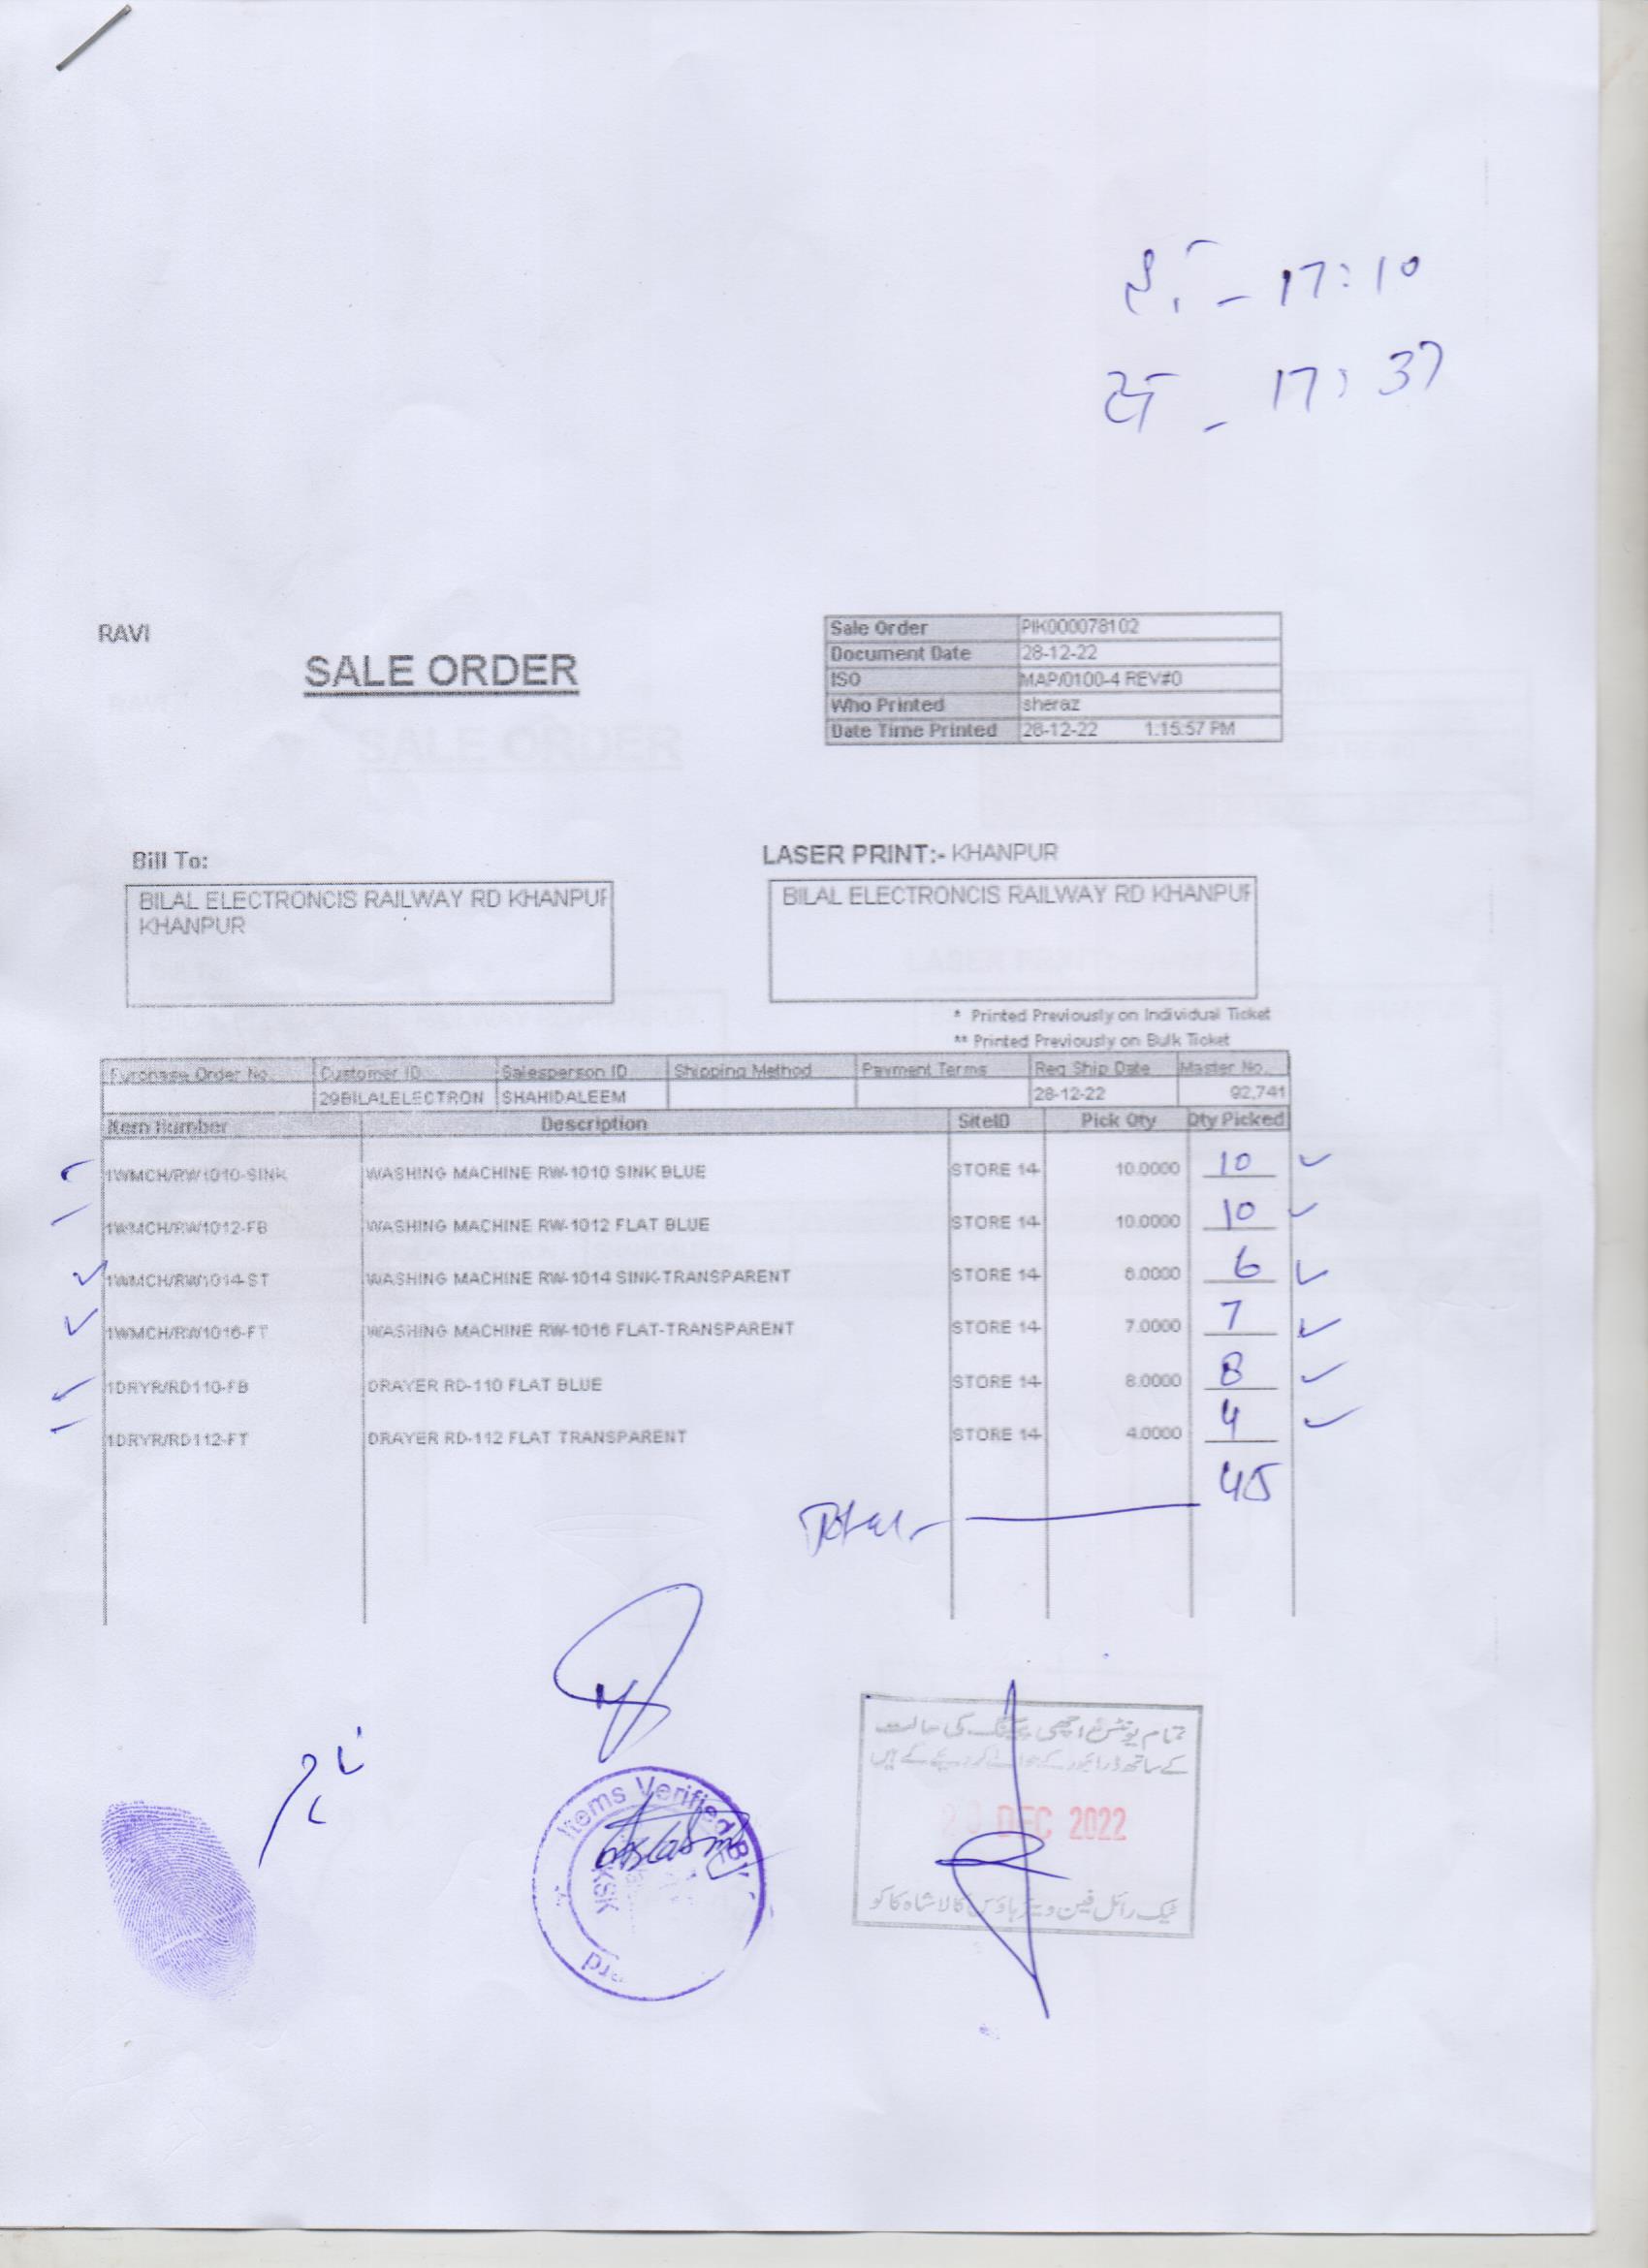 17:10
17:37
RAVI
SALE ORDER
Sale Order PIK000078102
Document Date 28-12-22
ISO MAP/0100-4 REV#0
Who Printed sheraz
Date Time Printed 28-12-22 1:15:57 PM
Bill To:
LASER PRINT:- KHANPUR
BILAL ELECTRONCIS RAILWAY RD KHANPUR
KHANPUR
BILAL ELECTRONCIS RAILWAY RD KHANPUR
* Printed Previously on Individual Ticket
** Printed Previously on Bulk Ticket
Purchase Order No. Customer ID Salesperson ID Shipping Method Payment Terms Req Ship Date Master No.
29BILALELECTRON SHAHIDALEEM 28-12-22 92,741
Item Number Description SiteID Pick Qty Qty Picked
1WMCH/RW1010-SINK WASHING MACHINE RW-1010 SINK BLUE STORE 14 10.0000 10
1WMCH/RW1012-FB WASHING MACHINE RW-1012 FLAT BLUE STORE 14 10.0000 10
1WMCH/RW1014-ST WASHING MACHINE RW-1014 SINK-TRANSPARENT STORE 14 6.0000 6
1WMCH/RW1016-FT WASHING MACHINE RW-1016 FLAT-TRANSPARENT STORE 14 7.0000 7
1DRYR/RD110-FB DRAYER RD-110 FLAT BLUE STORE 14 8.0000 8
1DRYR/RD112-FT DRAYER RD-112 FLAT TRANSPARENT STORE 14 4.0000 4
45
Total
تمام یونٹس اچھی پیکنگ کی حالت
کے ساتھ ڈرائیور کے حوالے کر دیئے گے ہیں
DEC 2022
ٹیک رائل فین ویئر ہاؤس کالا شاہ کاکو
Items Verified By
KSK